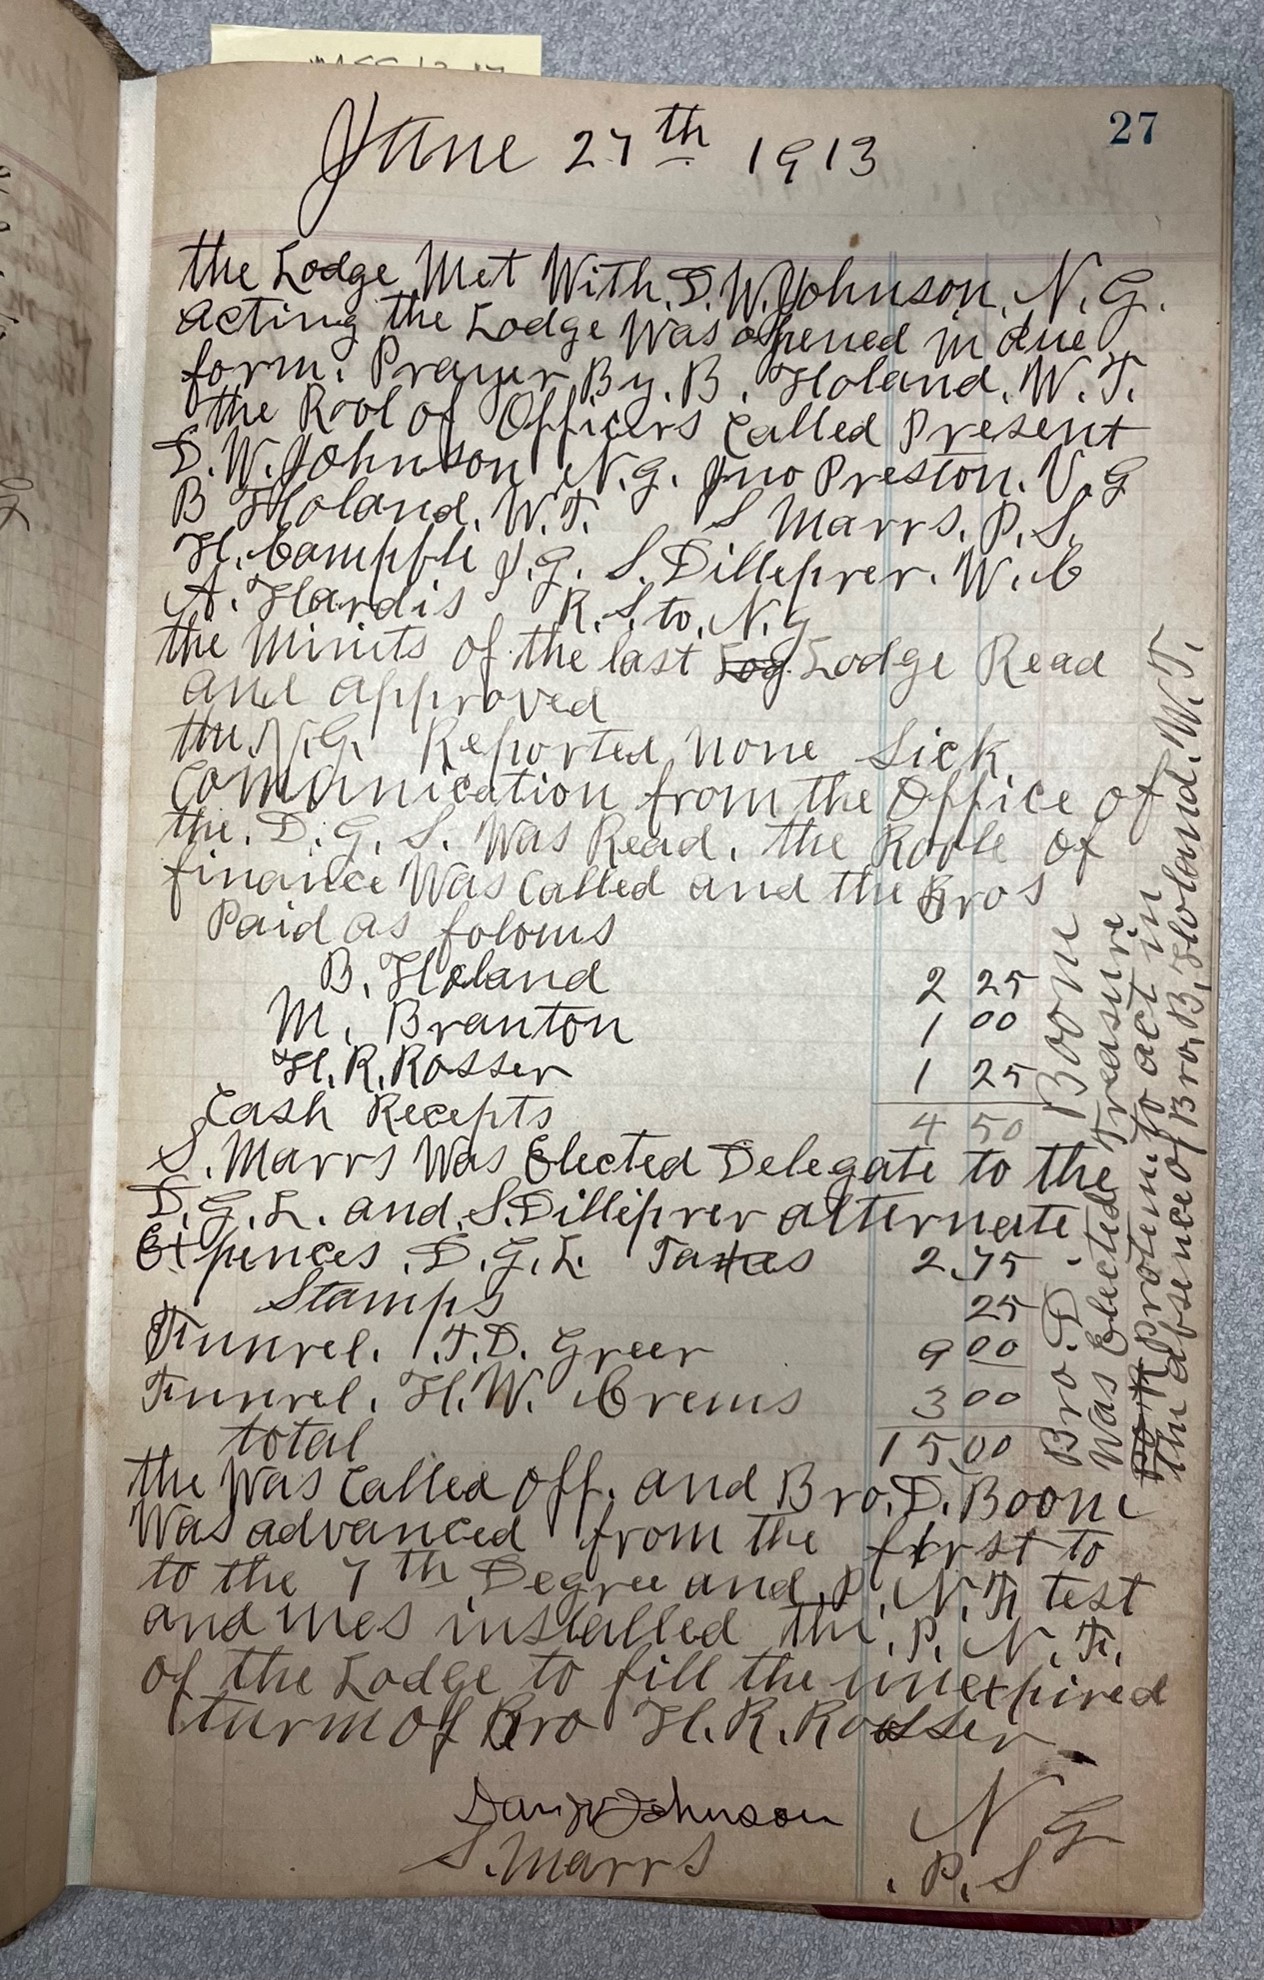 27
June 27th 1913
the Lodge Met With, D. W. Johnson, N. G.
acting the Lodge Was opened in due
form. Prayer By. B. Holand. W. T.
the Rool of Officers Called Present
D. W. Johnson N. G. Jno Preston. V. G
B Holand. W. T. S Marrs. P. S.
H. Campble J. G. S. Dilleprer. W. C
A. Hardis R. S. to. N. G
the Minits of the last Log Lodge Read
and approved
the N. G. Reported none Sick
Communication from the Office of
the. D. G. S. Was Read. the Roole of
finance Was Called and the Bros
Paid as folows
B. Holand 2 25
M. Branton 1 00
H. R. Rosser 1 25
Cash Recepts 4 50
S. Marrs Was Elected Delegate to the
D. G. L. and S. Dilleprer alternate
Expences. D. G. L. Taxes 2.75
Stamps 25
Funrel. T. D. Greer 9 00
Funrel. H. W. Crems 3 00
total 15.00
the Was Called off. and Bro. D. Boone
Was advanced from the first to
to the 7th Degree and P. N. F. test
and Wes installed the. P. N. F.
of the Lodge to fill the unexpired
turm of Bro H. R. Rosser
Johnson N G
S. Marrs P. S
Bro. D. Boone
Was Elected Treasure
Protem to act in
the absence of Bro. B. Holand. W. T.